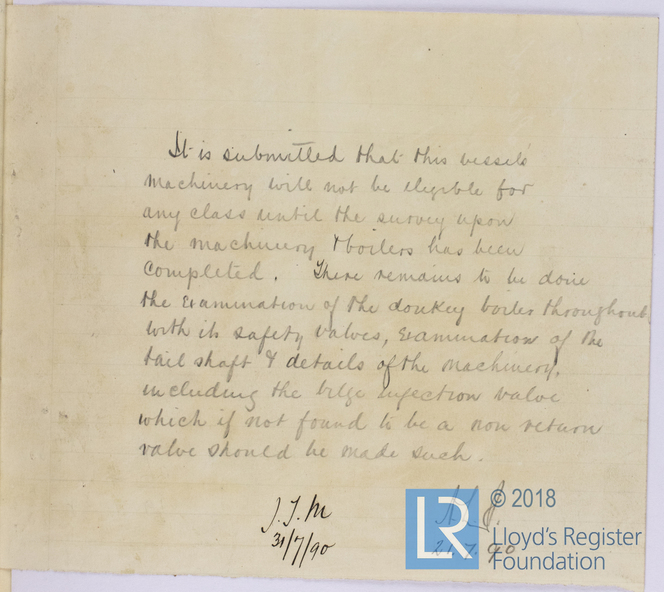 It is submitted that this vessels
machinery will not be eligible for
any class until the survey upon
the machinery & boilers has been
completed. There remains to be done
the examination of the donkey boiler throughout
with its safety valves, examination of the
tail shaft & details of the machinery,
including the bilge injection valve
which if not found to be a non return
valve should be made such.
J.T.M
31/7/90
LR
© 2018
Lloyd's Register
Foundation